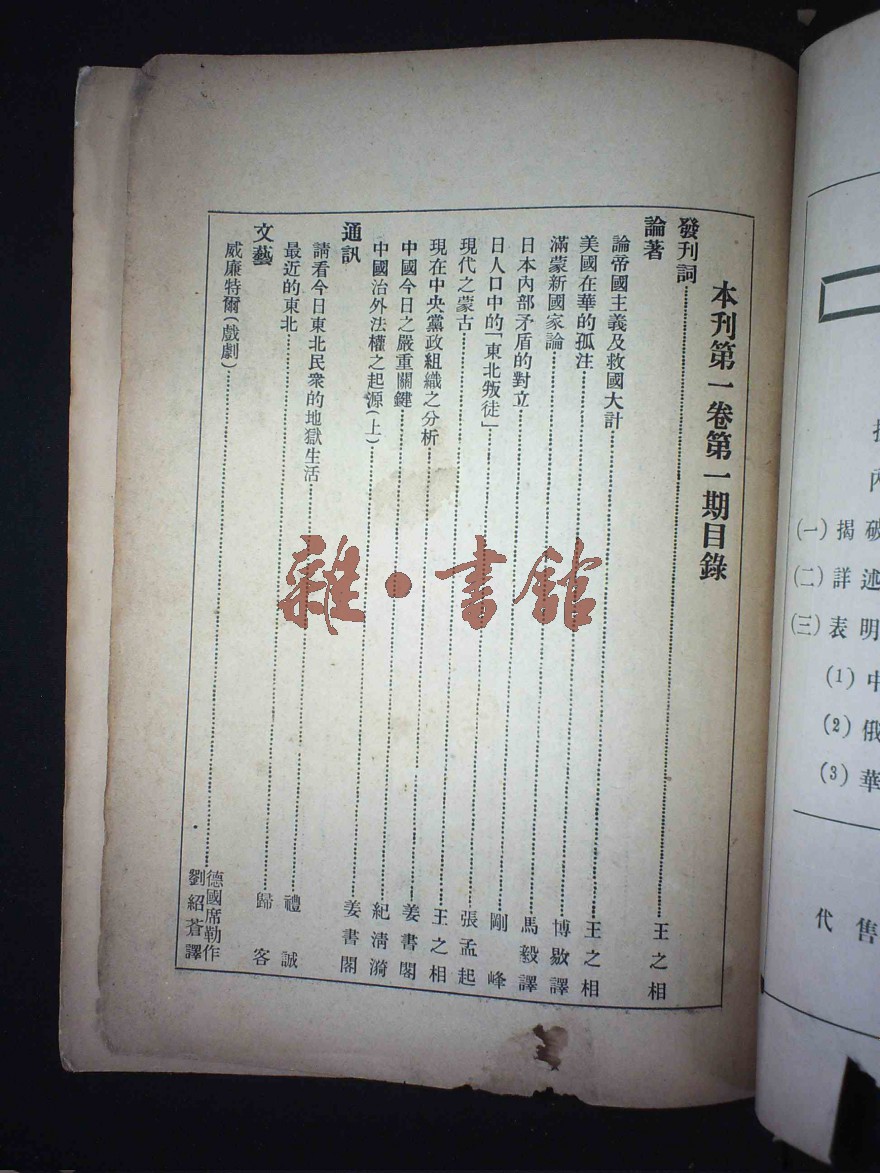 本刊第一卷第一期目錄
發刊詞……王之相
論著
論帝國主義及救國大計……王之相
美國在華的孤注……博敭譯
滿蒙新國家論……馬毅譯
日本內部矛盾的對立……剛峰
日人口中的「東北叛徒」……張孟起
現代之蒙古……王之相
現在中央黨政組織之分析……姜書閣
中國今日之嚴重關鍵……紀清漪
中國治外法權之起源(上)……姜書閣
通訊
請看今日東北民衆的地獄生活……禮誠
最近的東北……歸客
文藝
威廉特爾(戲劇)……德國席勒作
劉紹蒼譯
雜·書館
(一)揭破
(二)詳述
(三)表明
(1)中
(2)俄
(3)華
代售